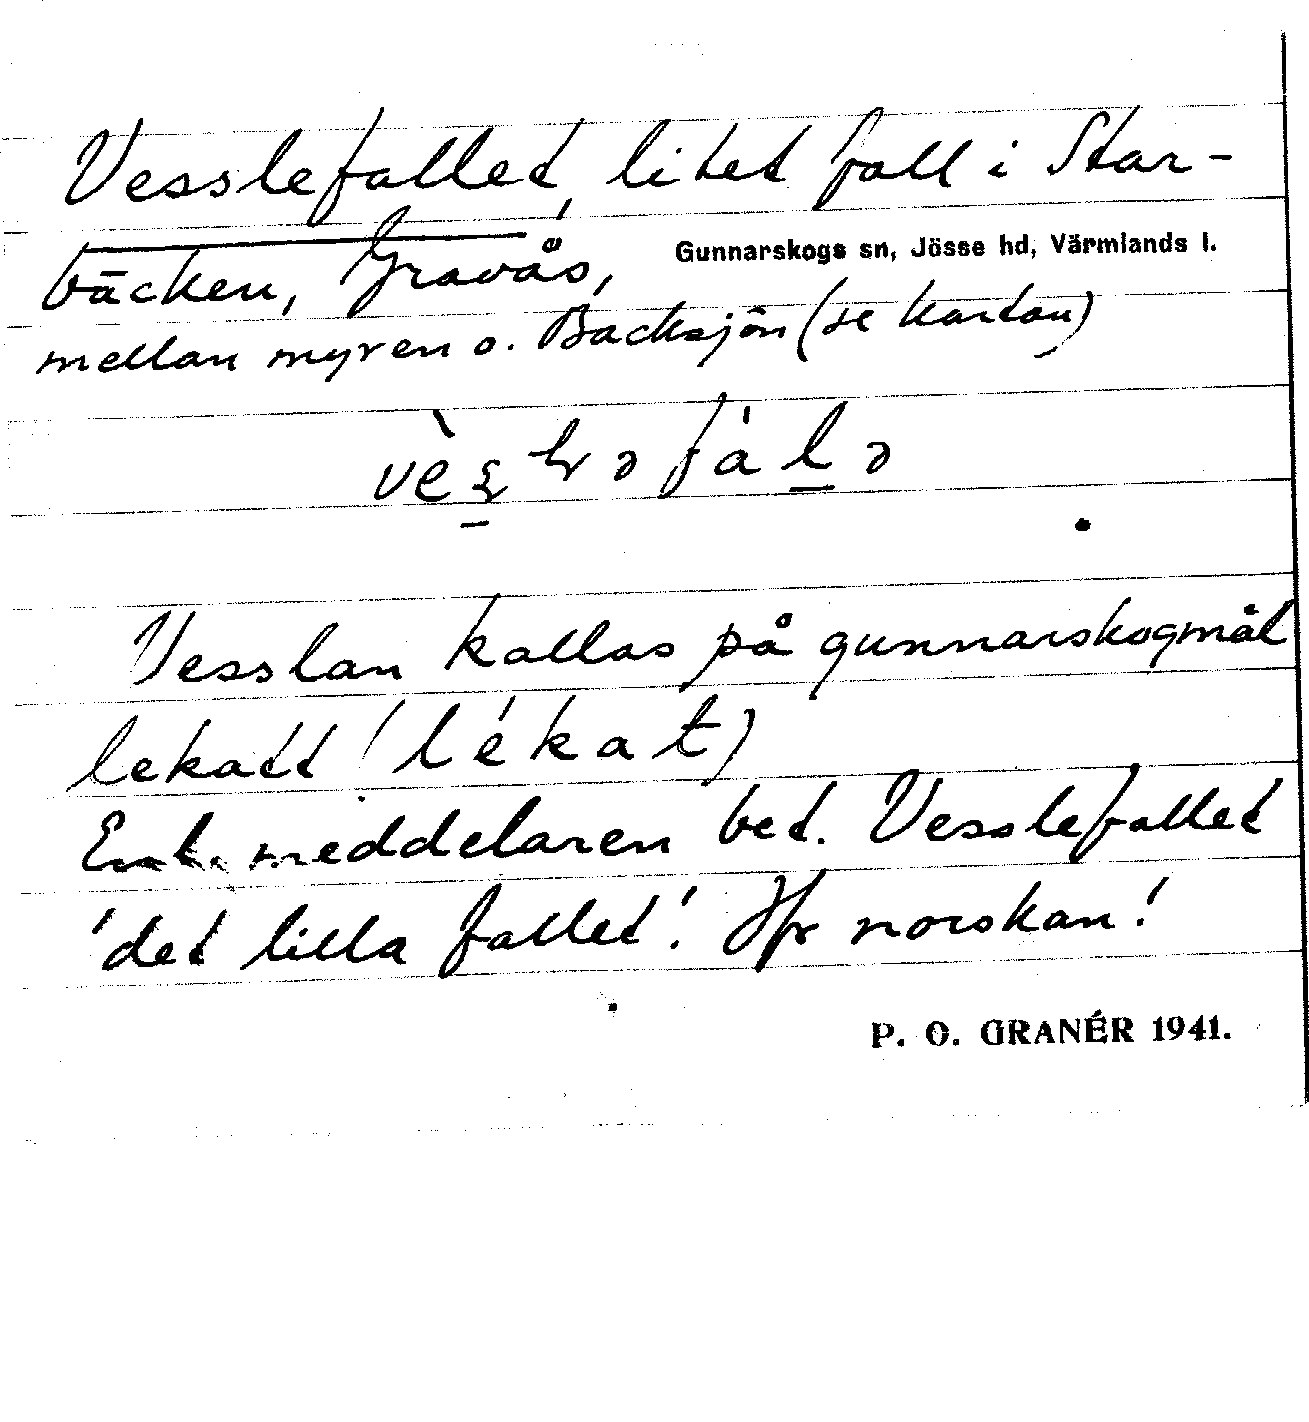 Vesslefallet, litet fall i Star-
bäcken, Gravås,
Gunnarskogs sn, Jösse hd, Värmlands l.
mellan myren o. Backsjön (se kartan)
Vesslan kallas på gunnarskogmål
lekatt (lékat)
Enl. meddelaren bet. Vesslefallet
'det lilla fallet'. Jfr norskan!
P. O. GRANÉR 1941.